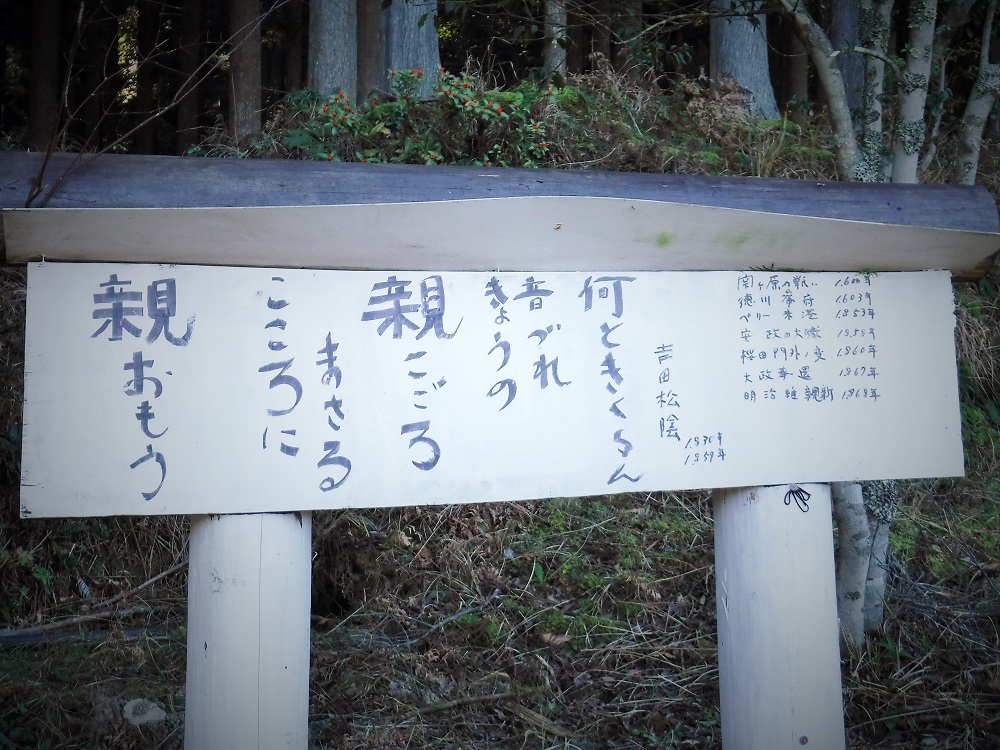 親おもう
こころに
まさる
親こごろ
きょうの
音づれ
何ときくらん
吉田松陰
1830年
1859年
関ヶ原の戦い 1600年
徳川幕府 1603年
ペリー来港 1853年
安政の大獄 1858年
桜田門外ノ変 1860年
大政奉還 1867年
明治維新 1868年